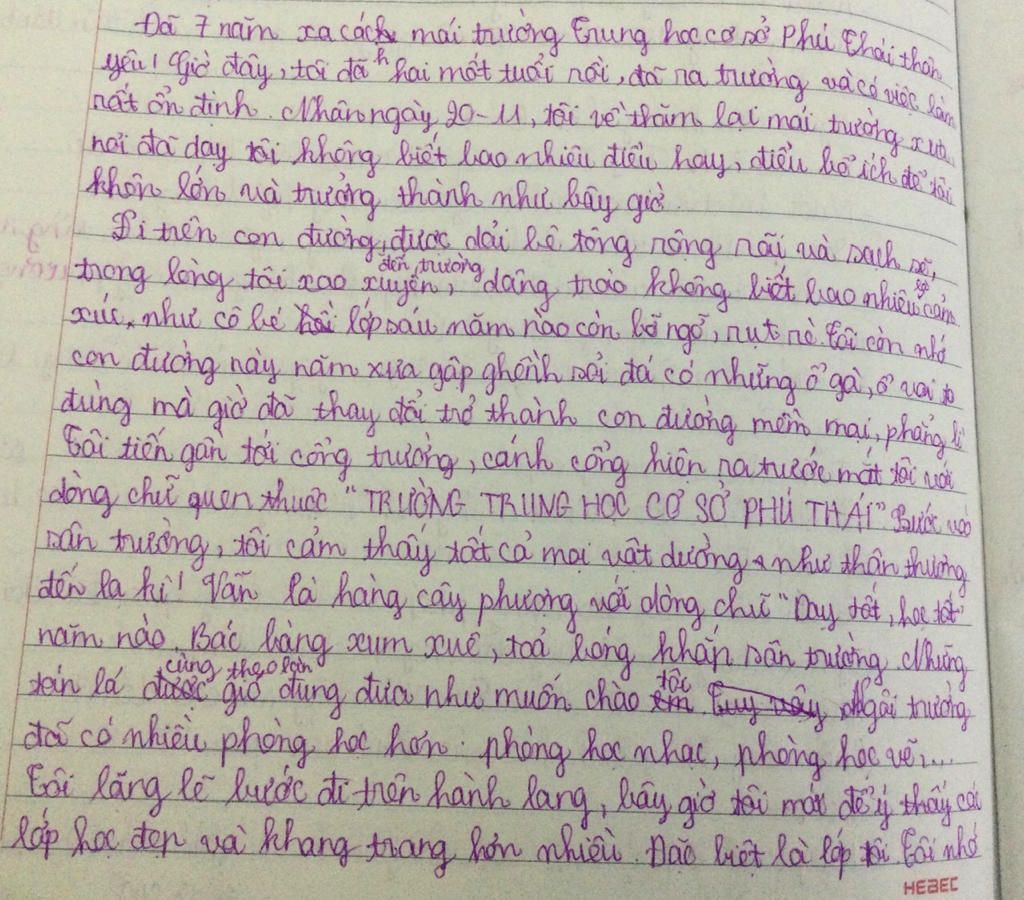 Đã 7 năm xa cách mái trường Trung học cơ sở Phú Thái thân
yêu! Giờ đây, tôi đã hai mốt tuổi rồi, đã ra trường và có việc làm
rất ổn định. Nhân ngày 20-11, tôi về thăm lại mái trường xưa,
nơi đã dạy tôi không biết bao nhiêu điều hay, điều bổ ích để tôi
khôn lớn và trưởng thành như bây giờ
Đi trên con đường, được dải bê tông rộng rãi và sạch sẽ,
đến trường
trong lòng tôi xao xuyến, dâng trào không biết bao nhiêu cảm
xúc như cô bé lớp sáu năm nào còn bỡ ngỡ, rụt rè. Tôi còn nhớ
con đường này năm xưa gập ghềnh sỏi đá có những ổ gà, ổ voi to
đùng mà giờ đã thay đổi trở thành con đường mềm mại, phẳng lì
Tôi tiến gần tới cổng trường, cánh cổng hiện ra trước mắt tôi với
dòng chữ quen thuộc "TRƯỜNG TRUNG HỌC CƠ SỞ PHÚ THÁI" Bước vào
sân trường, tôi cảm thấy tất cả mọi vật dường như thân thương
đến lạ kì! Vẫn là hàng cây phượng với dòng chữ "Dạy tốt, học tốt"
năm nào. Bác bàng xum xuê, toả bóng khắp sân trường. Những
cùng theo làn
tán lá gió đung đưa như muốn chào tôi Ngôi trường
đã có nhiều phòng học hơn: phòng học nhạc, phòng học vẽ...
Tôi lặng lẽ bước đi trên hành lang, bây giờ tôi mới để ý thấy các
lớp học đẹp và khang trang hơn nhiều. Đặc biệt là lớp tôi Tôi nhớ
HEBEC